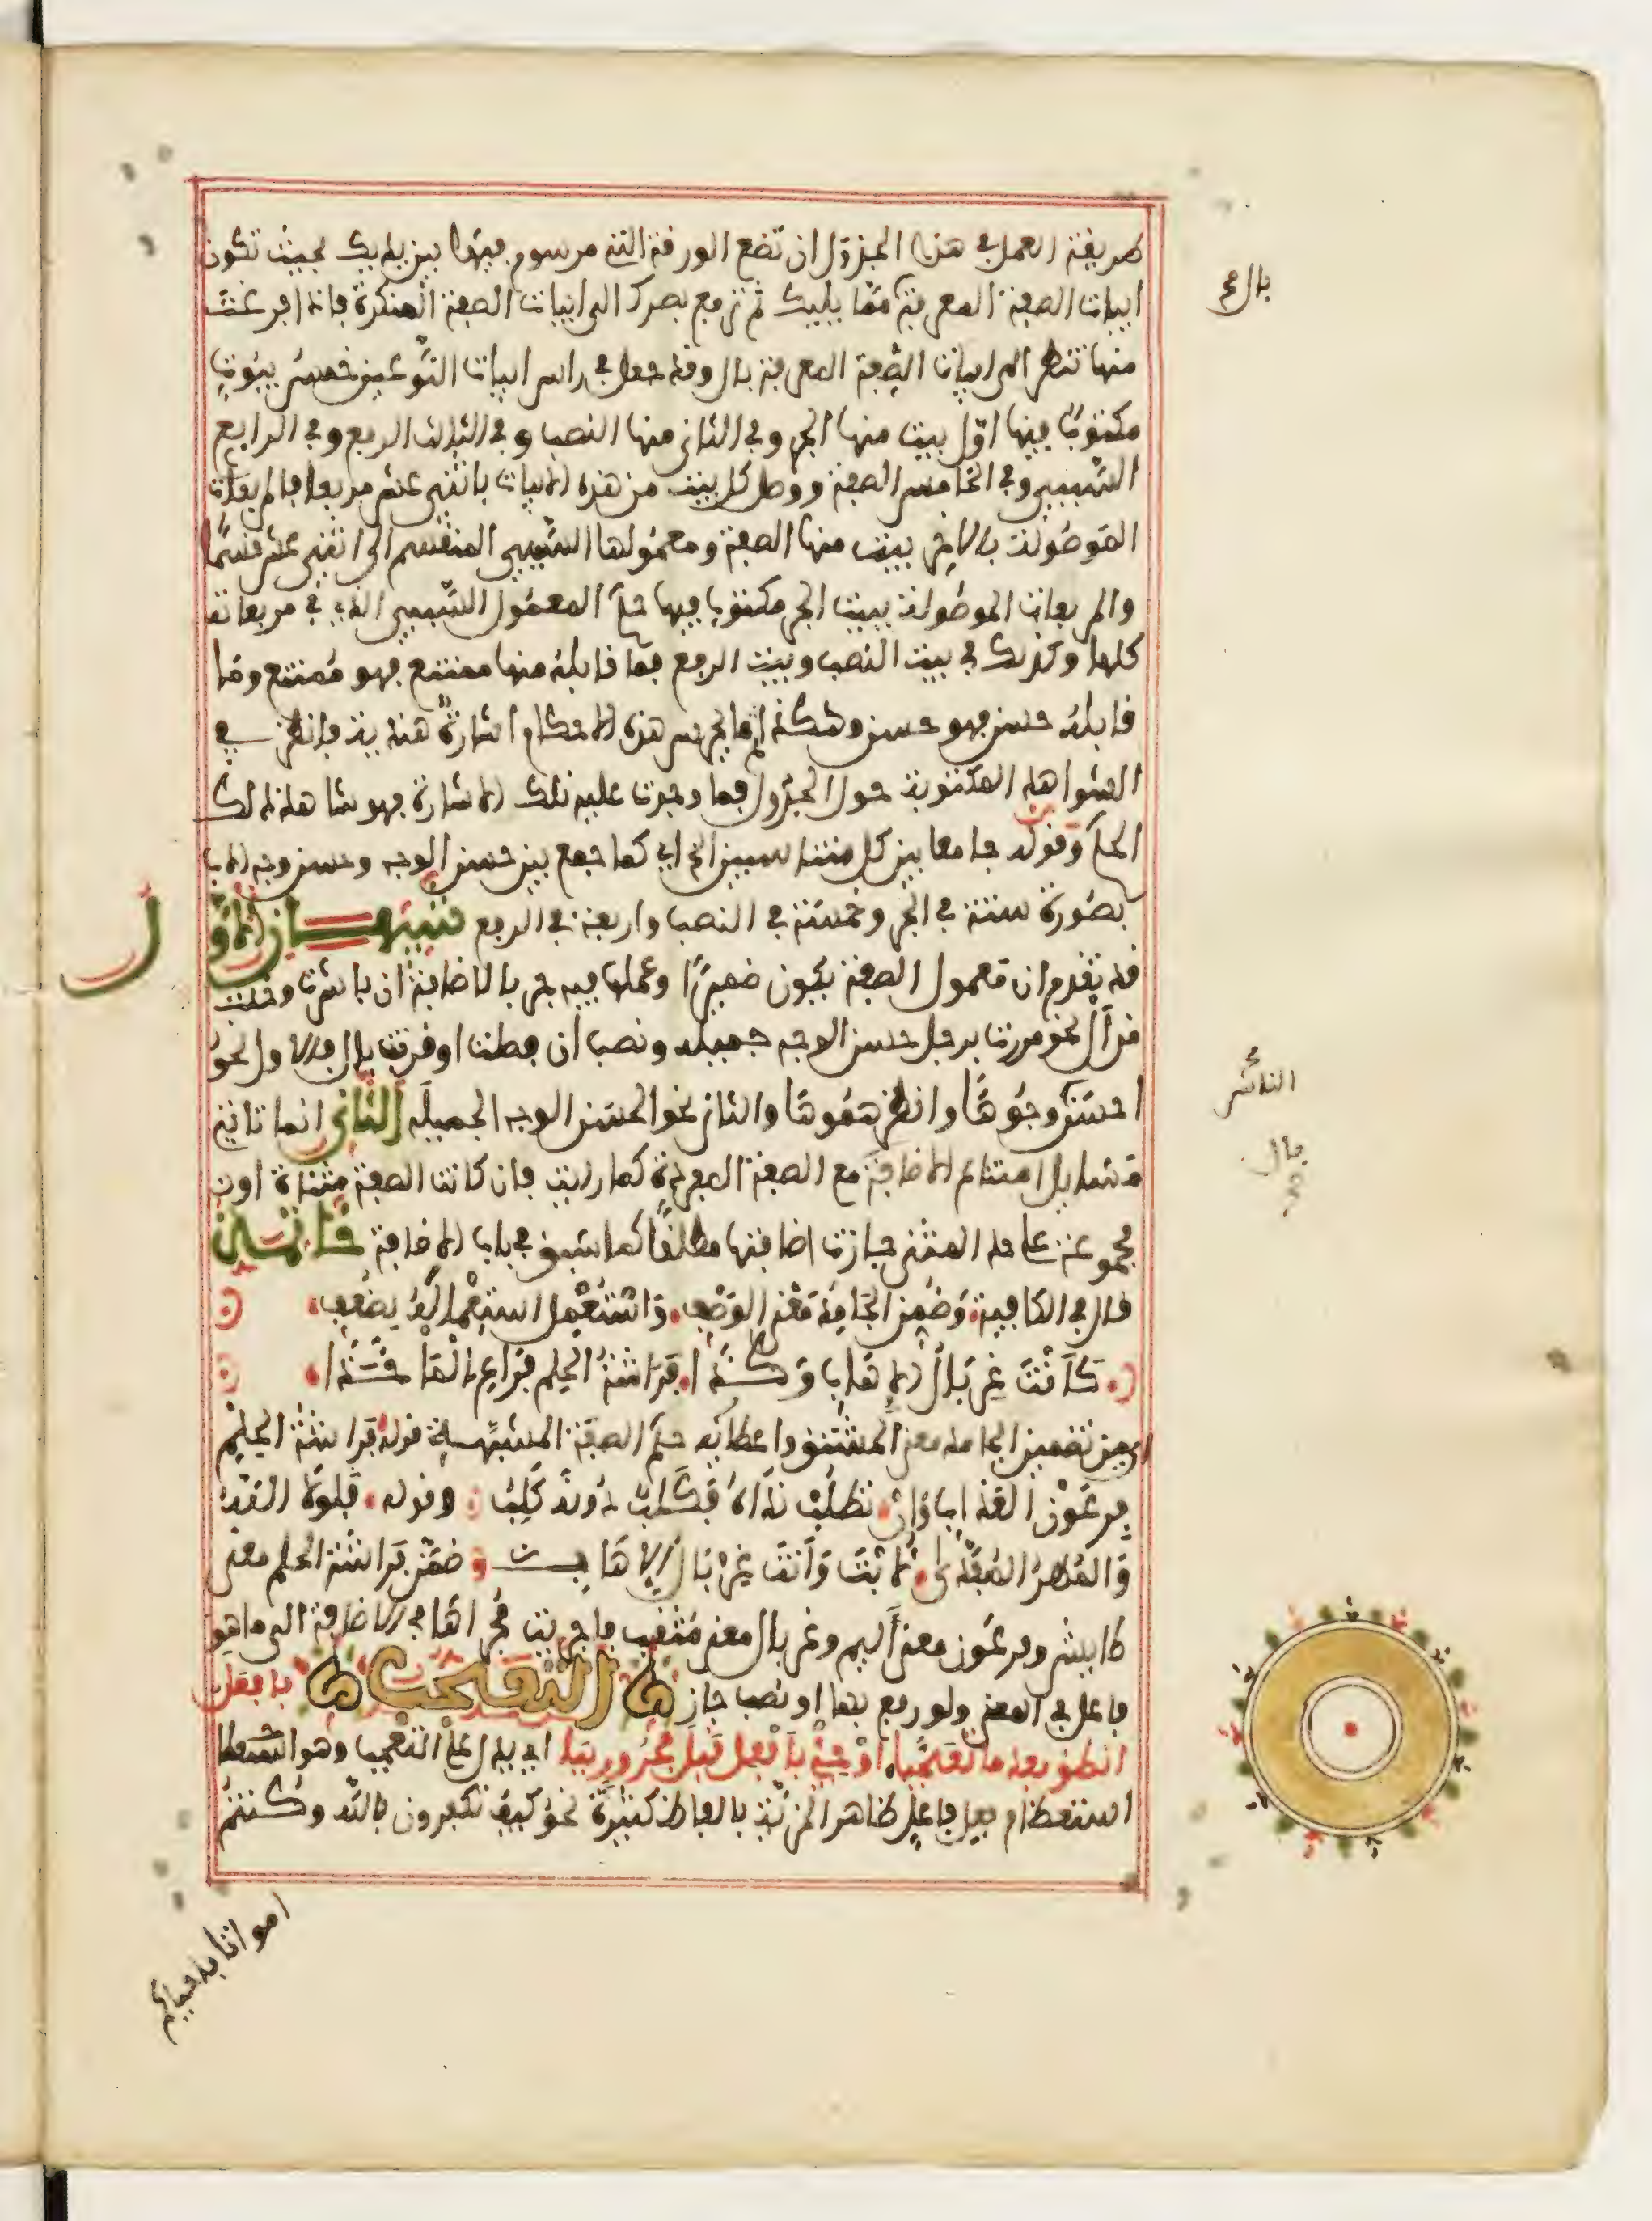 طريقة العمل في هذا الجدول ان تضع الورقة التي مرسوم فيها بين يديك بحيث تكون
ابيات الصفة المعرفة مما يليك ثم ترفع بصرك الى ابيات الصفة المنكرة فاذا فرغت
منها تنظر الى ابيات الصفة المعرفة بال وقد جعل في راس ابيات النوعين خمس بيوت
مكتوبا فيها اول بيت منها الجر وفي الثاني منها النصب وفي الثالث الرفع وفي الرابع
السببي وفي الخامس الصفة ووصل كل بيت من هذه الابيات باثني عشر مربعا فالمربعات
الموصولة بالاخر بيت منها الصفة ومعمولها السببي المنقسم الى اثني عشر قسما
والمربعات الموصولة ببيت الجر مكتوبا فيها حكم المعمول السببي الذي في مربعاته
كلها وكذلك في بيت النصب وبيت الرفع فما قابله منها ممتنع فهو ممتنع وما
قابله حسن فهو حسن وهكذا ثم اجر من هذه الاحكام اشارة هندية فانظر في
الشواهد المكتوبة حول الجدول فما وجدت عليه تلك الاشارة فهو شاهد لذلك
الحكم وقوله جامعا بين كل متناسبين الخ اي كما جمع بين حسن الوجه وحسن وجه الاب
بصورة ستة في الجر وخمسة في النصب واربعة في الرفع تنبيهان الاول
قد تقدم ان معمول الصفة يكون ضميرا وعملها فيه جر بالاضافة ان باشرت وخلت
من ال نحو مررت برجل حسن الوجه جميله ونصب ان فصلت او قرنت بال فالاول نحو
احسن وجوها وانظرهموها والثاني نحو الحسن الوجه الجميله الثاني انما تاتي
مسايل امتناع الاضافة مع الصفة المفردة كما رايت فان كانت الصفة مثناة او
مجموعة على حد المثنى جازت اضافتها مطلقا كما سبق في باب الاضافة خاتمة
قال في الكافية وضمن الجامد معنى الوصف واستعمل استعماله بضعف
كانت غربال الاهاب وكذا فراشة الحلم فراع الماخذا
اي من تضمين الجامد معنى المشتق واعطائه حكم الصفة المشبهة قوله فراشة الحلم
فرعون العذاب وان تطلب نداه فكلب دونه كلب وقوله فلولا الله
والمهر المفدى لابت وانت غربال الاهاب ضمن فراشة الحلم معنى
طايش وفرعون معنى اليم وغربال معنى مثقب فاجريت مجراها في الاضافة الى ما هو
فاعل في المعنى ولو رفع بها او نصب جاز التعجب بافعل
انطق بعد ما تعجبا او جئ بافعل قبل مجرور ببا اي يدل على التعجب وهو استعظام
استعظام فعل فاعل ظاهر المزية بالفاظ كثيرة نحو كيف تكفرون بالله وكنتم
امواتا فاحياكم